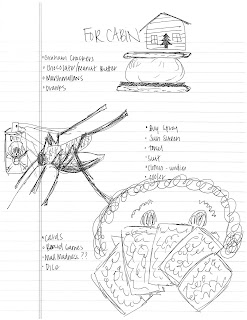 FOR CABIN
• Graham Crackers
• Chocolate/Peanut Butter
• Marshmallows
• Drinks
• Bug Spray
• Sun Screen
• Towel
• Suit
• Clothes - undies
• cooler
• Cards
• Board Games
• Mad Madness ??
• Dice